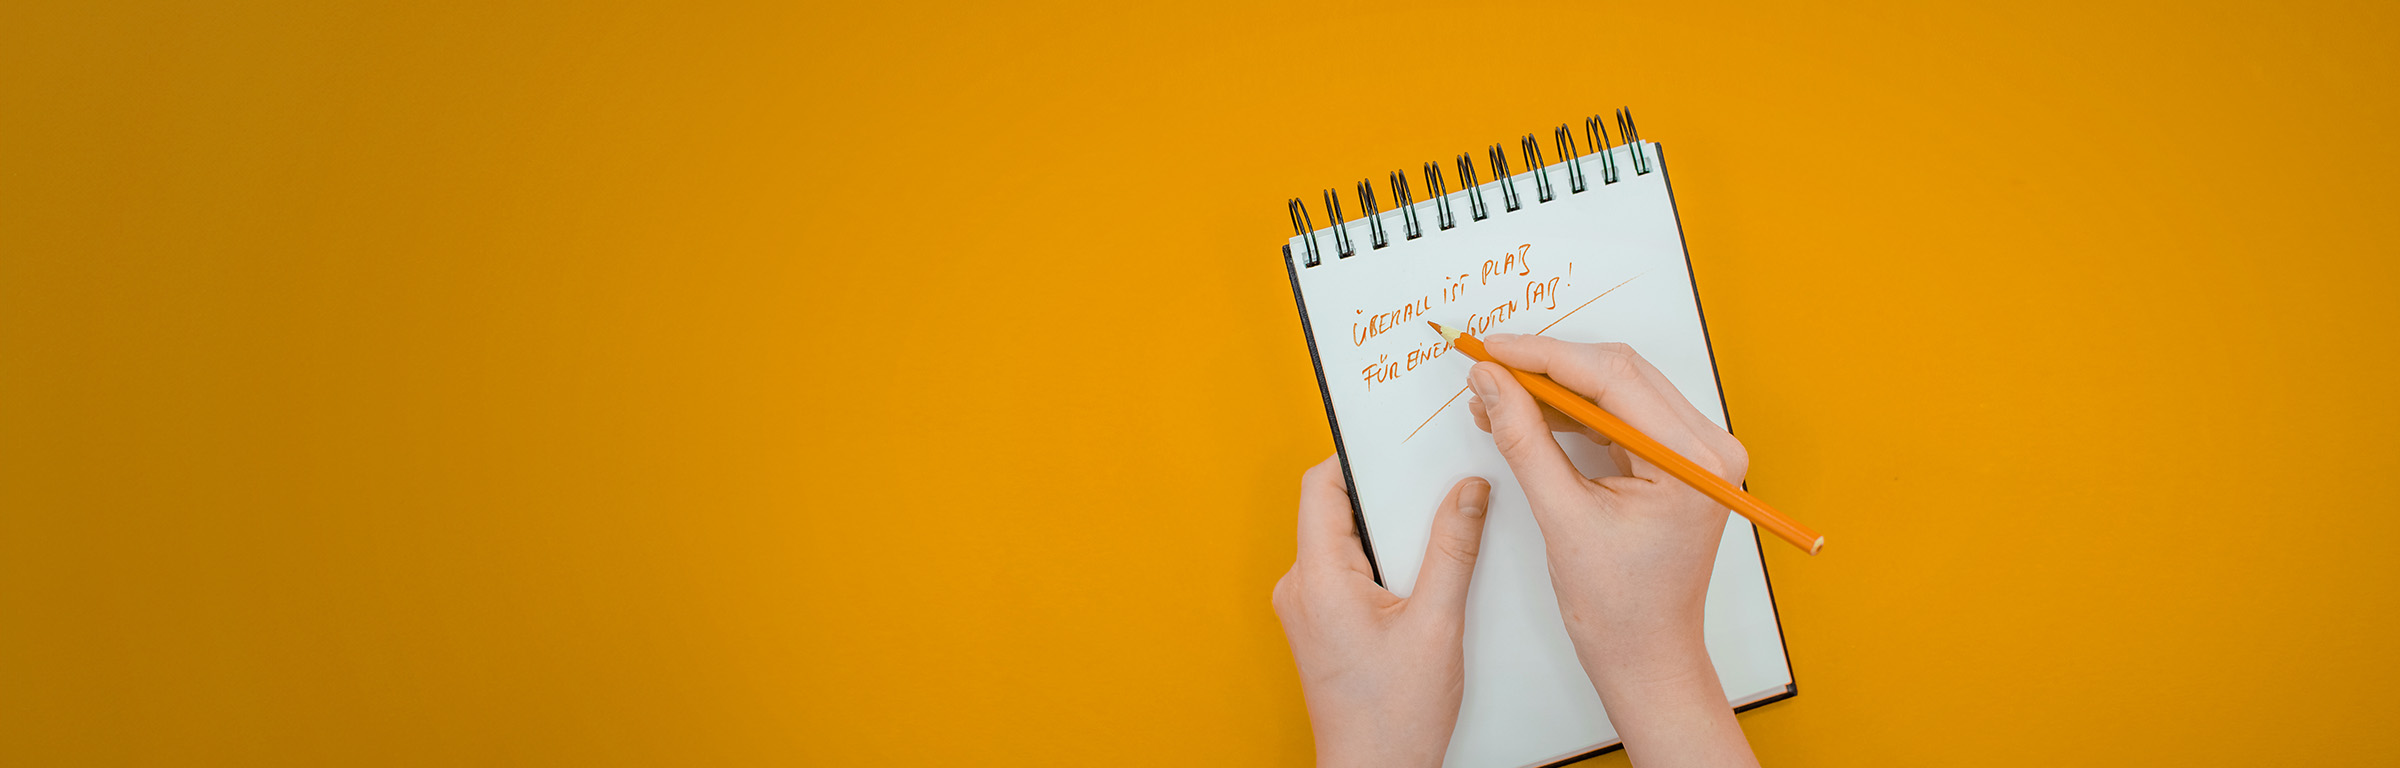 ÜBERALL IST PLATZ
FÜR EINEN GUTEN SATZ!